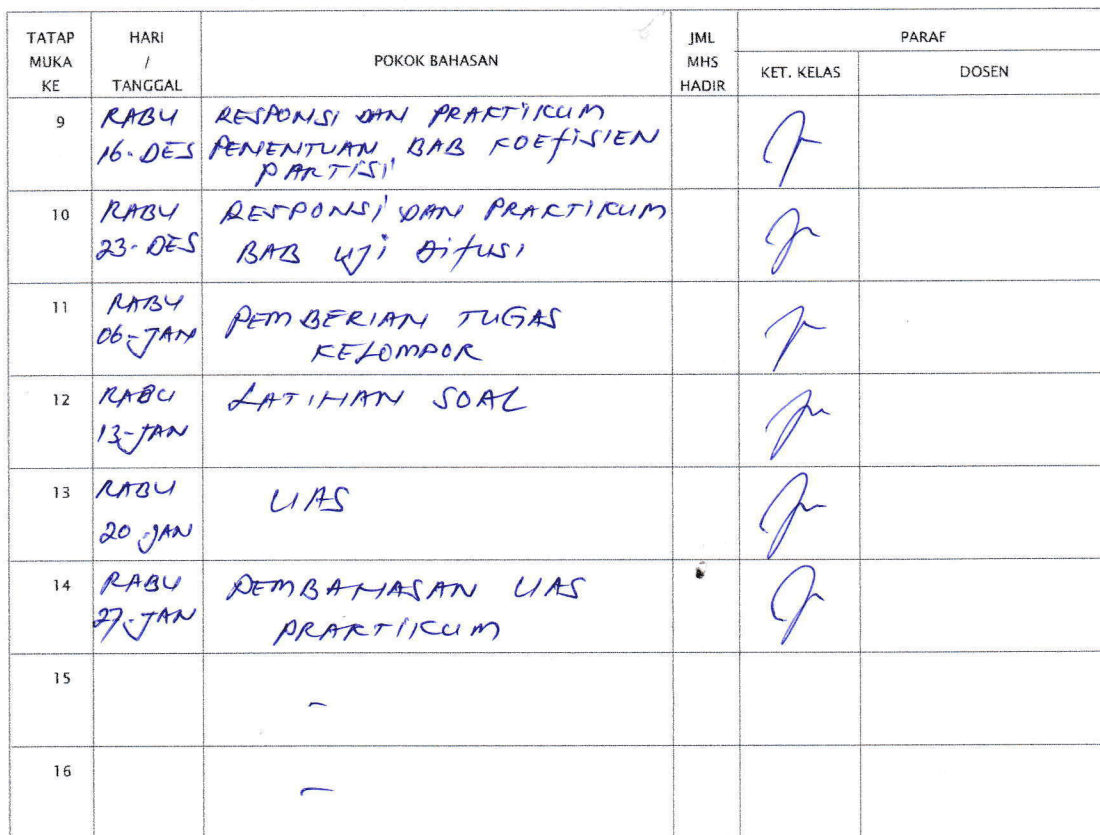 TATAP MUKA KE
HARI / TANGGAL
POKOK BAHASAN
JML MHS HADIR
PARAF
KET. KELAS
DOSEN
9
RABU
16-DES
RESPONSI DAN PRAKTIKUM
PENENTUAN BAB KOEFISIEN
PARTISI
10
RABU
23-DES
RESPONSI DAN PRAKTIKUM
BAB UJI DIFUSI
11
RABU
06-JAN
PEMBERIAN TUGAS
KELOMPOK
12
RABU
13-JAN
LATIHAN SOAL
13
RABU
20-JAN
UAS
14
RABU
27-JAN
PEMBAHASAN UAS
PRAKTIKUM
15
-
16
-